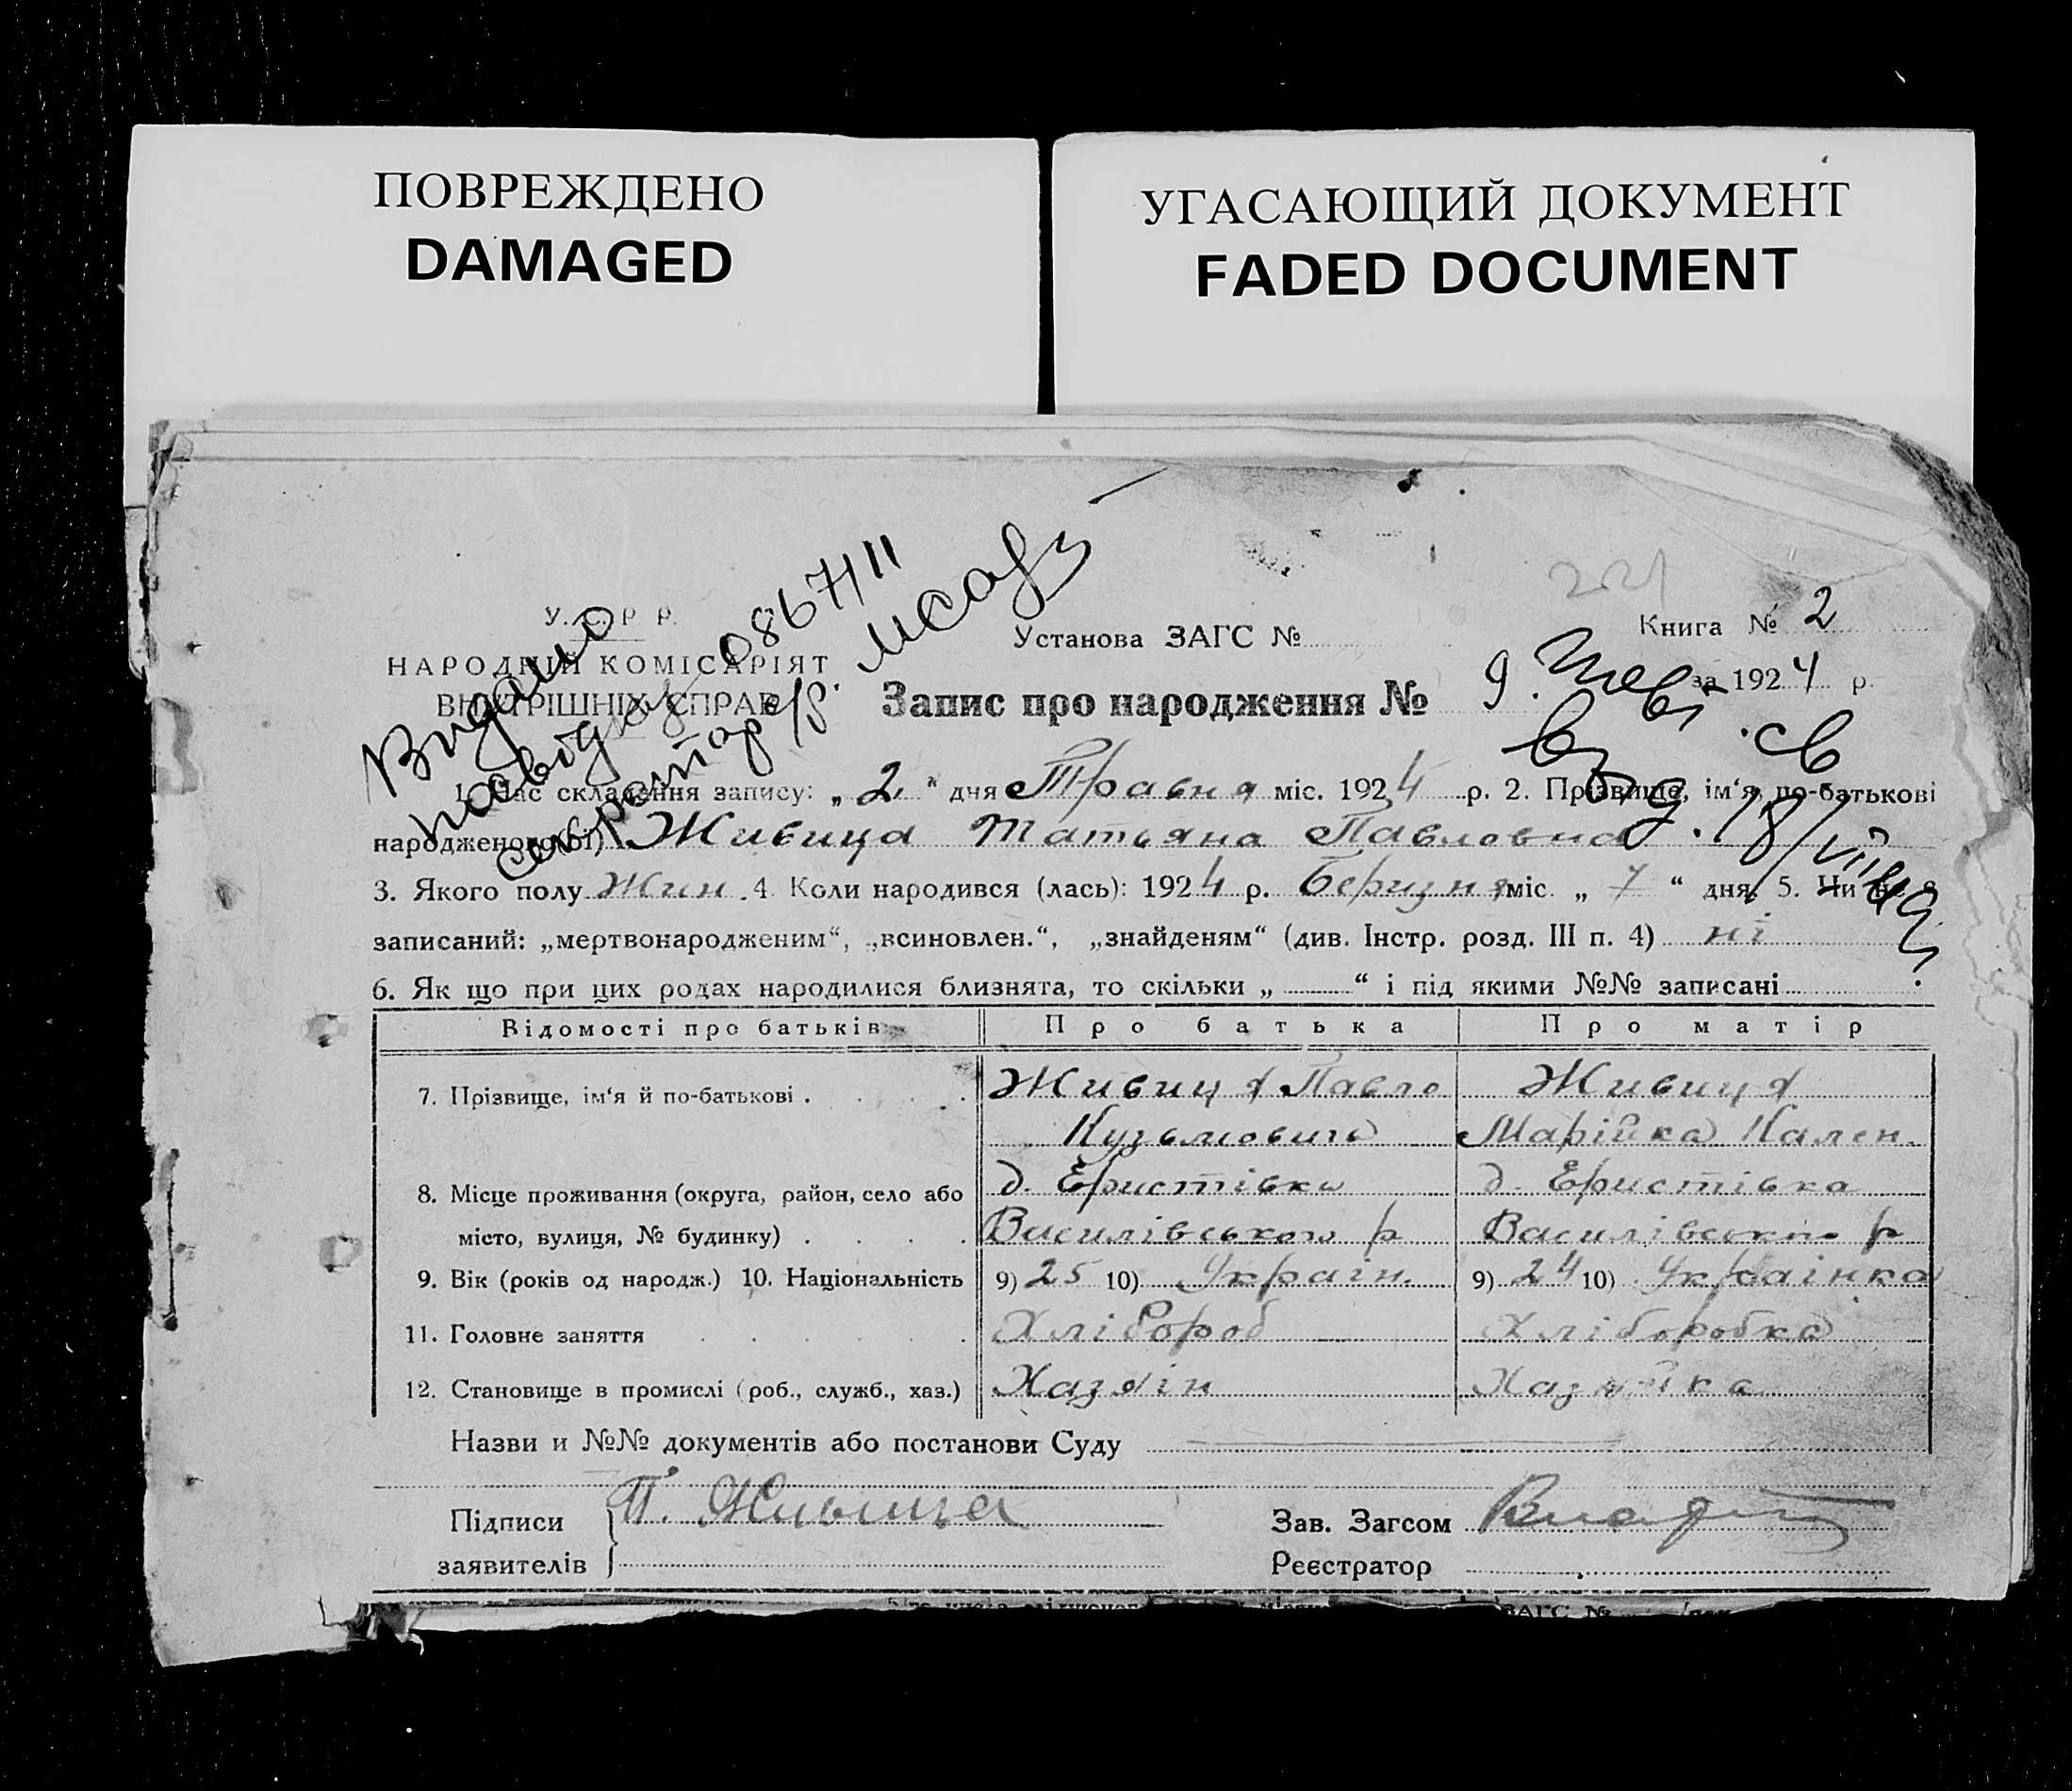 ПОВРЕЖДЕНО
DAMAGED
УГАСАЮЩИЙ ДОКУМЕНТ
FADED DOCUMENT
221
У. Р Р.
НАРОДНІЙ КОМІСАРІЯТ
ВНУТРІШНІХ СПРАВ
Видано
086711
секретар с/р.
Установа ЗАГС №
Книга № 2
за 1924 р.
Запис про народження № 9
1. Час складення запису: „2“ дня Травня міс. 1924 р. 2. Прізвище, ім‘я, по-батькові
народженого(ої) Живица Татьяна Павловна
3. Якого полу Жин. 4. Коли народився (лась): 1924 р. Беризня міс. „7“ дня, 5. Чи не є
записаний: „мертвонародженим“, „всиновлен.“, „знайденям“ (див. Інстр. розд. III п. 4) ні
6. Як що при цих родах народилися близнята, то скільки „ “ і під якими №№ записані
Відомості про батьків
Про батька
Про матір
7. Прізвище, ім‘я й по-батькові
Живиця Павло
Кузьмовичь
Живиця
Марійка Кален.
8. Місце проживання (округа, район, село або
місто, вулиця, № будинку)
д. Еристівка
Василівського р
д. Еристівка
Василівського р
9. Вік (років од народж.) 10. Національність
9) 25 10) Україн.
9) 24 10) Українка
11. Головне заняття
Хлібороб
Хліборобка
12. Становище в промислі (роб., служб., хаз.)
Хазяін
Хазяйка
Назви и №№ документів або постанови Суду
Підписи
заявителів
П. Живица
Зав. Загсом
Реєстратор